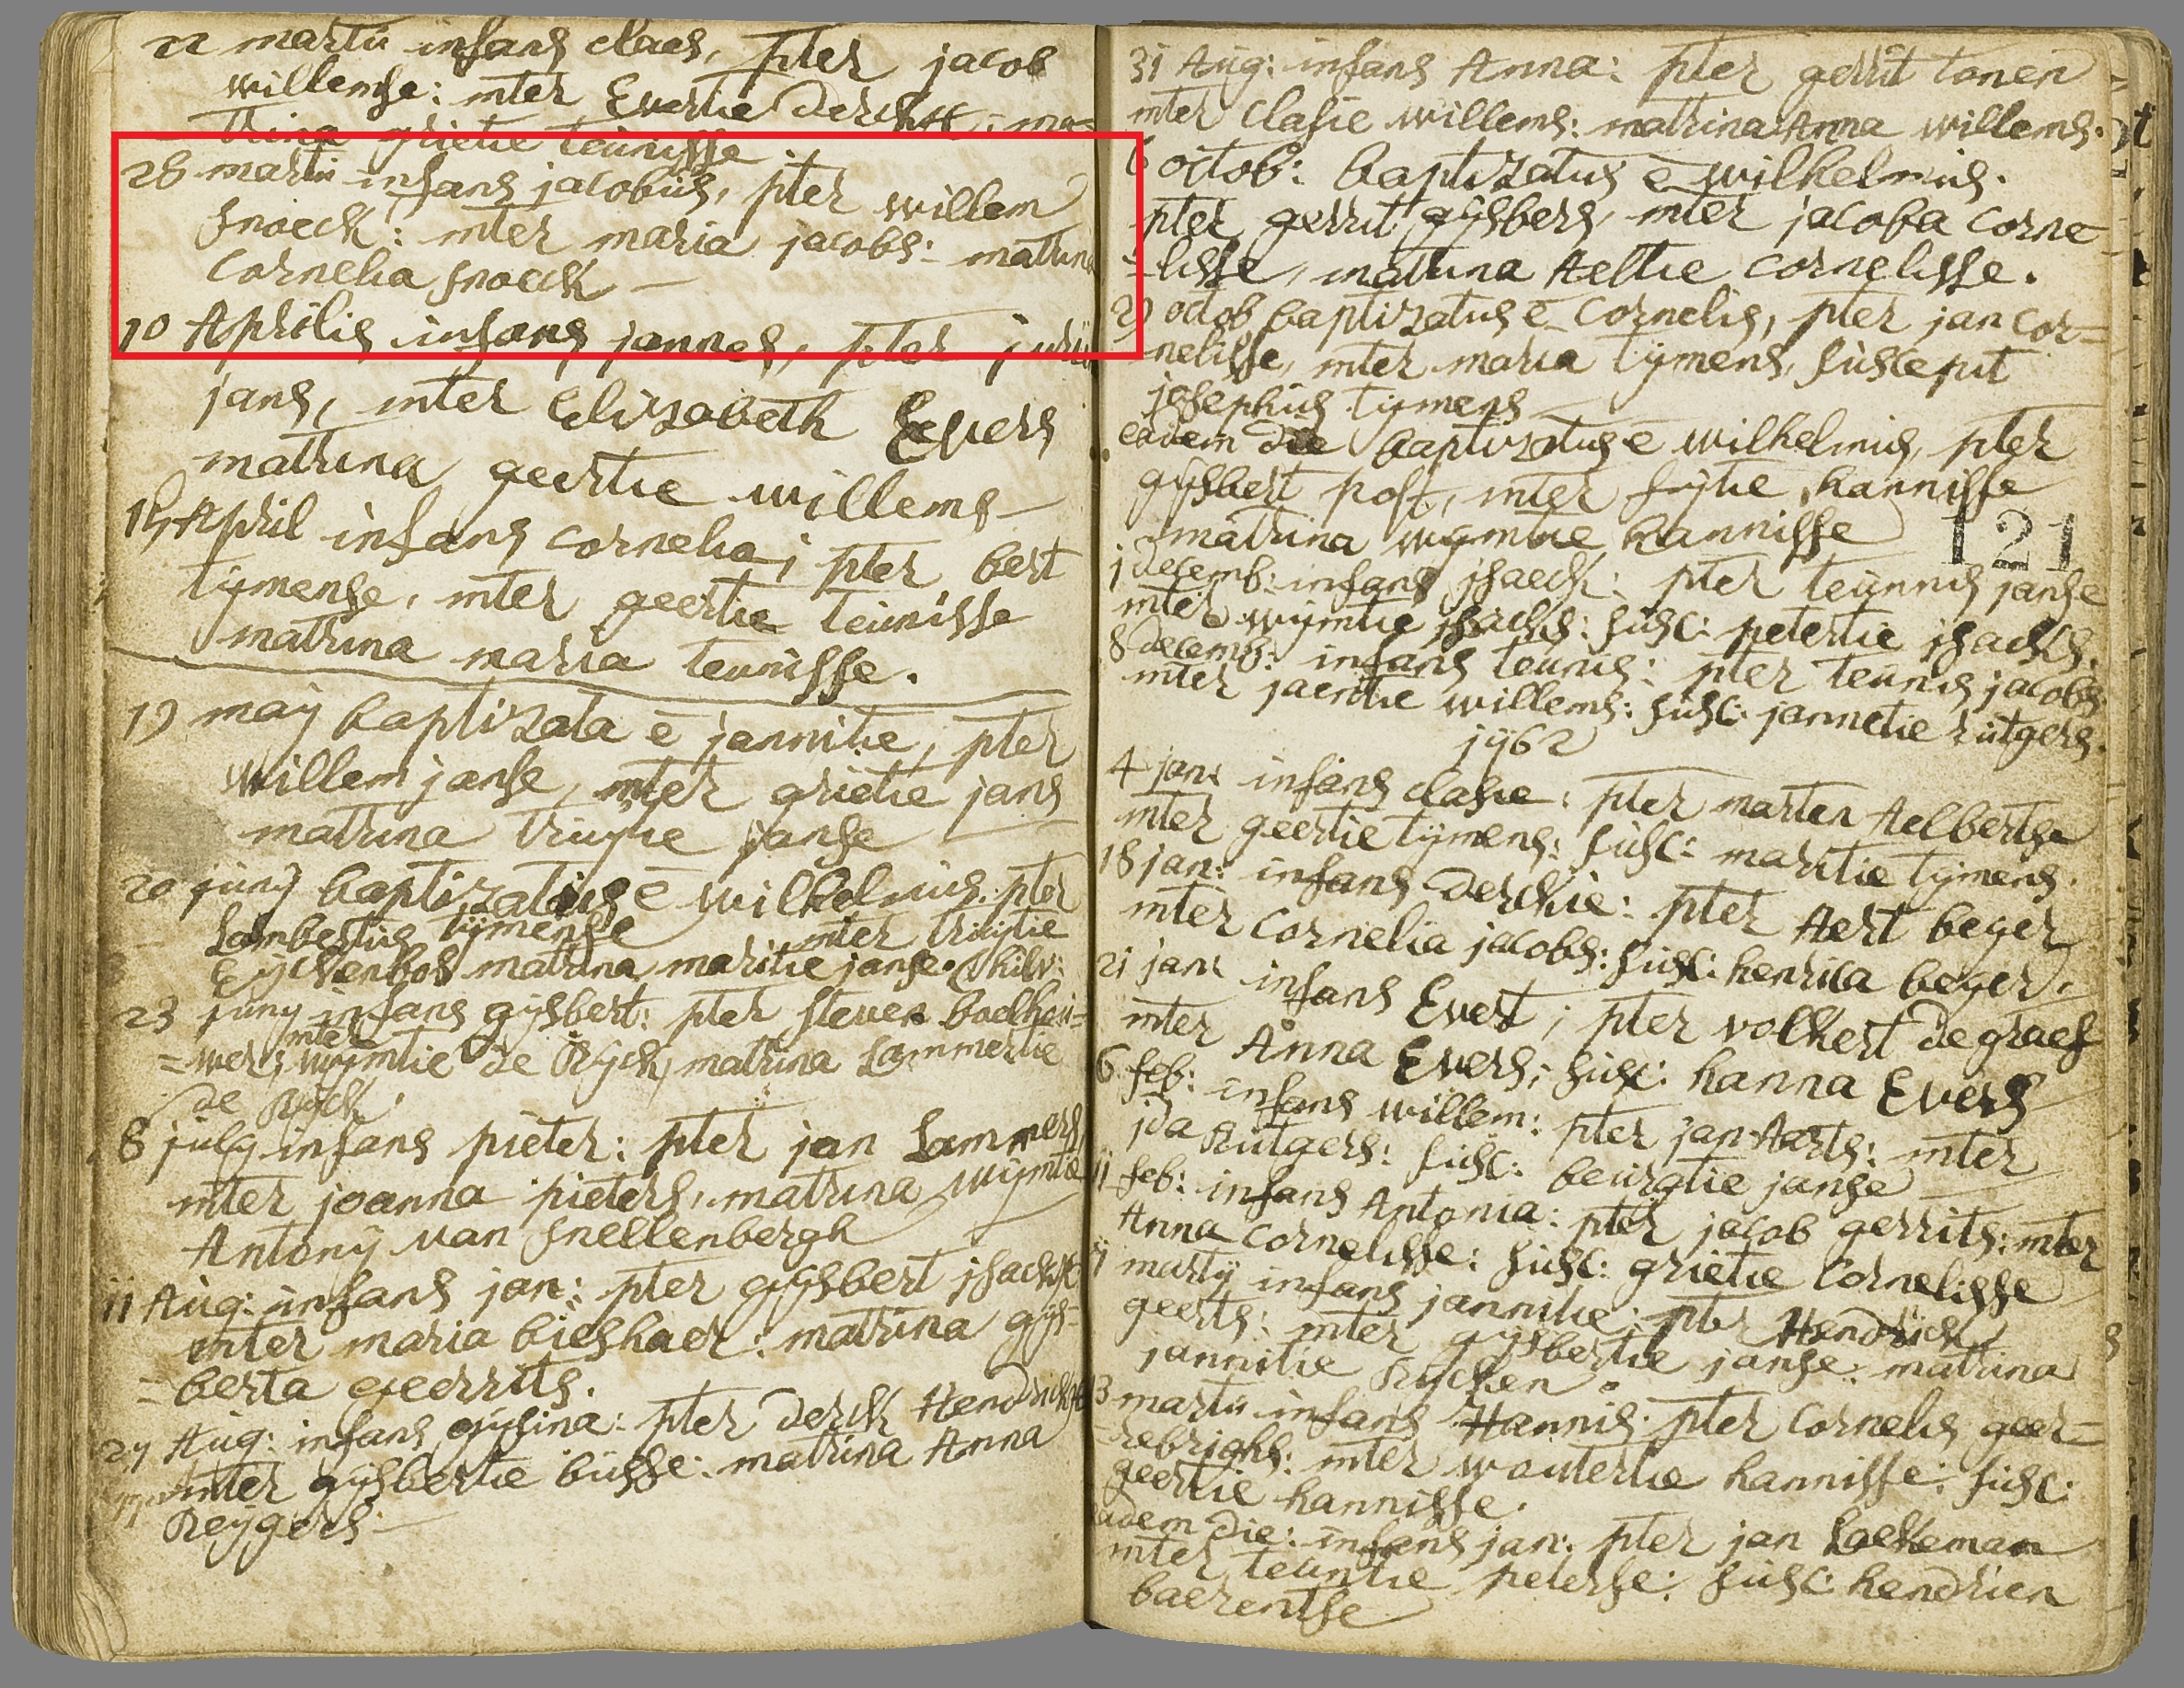 22 martii infans claes, pter jacob
willemse: mter Evertie Dercks; ma=
trina grietie teunisse
28 martii infans jacobus, pter willem
snoeck: mter maria jacobs: matrina
Cornelia snoeck —
10 Aprilis infans jannes, pter
jans, mter Elizabeth Evers
matrina geertie willems —
April infans cornelia; pter bert
tijmense, mter geertie teunisse
matrina maria teunisse.
19 maij baptizata e jannitie, pter
willem janse, mter grietie jans
matrina truijtie janse
20 junij baptizatus e wilhelmus. pter
Lambertus tijmense mter truijtie
Eijckenbos matrina maritie janse.
23 junij infans gijsbert: pter steven boelhou=
=wer; mter wijmtie de Rijck, matrina Lammertie
de Rijck.
8 julij infans pieter: pter jan Lammers,
mter joanna pieters, matrina wijmtie
Antonij van snellenbergh
11 Aug: infans jan: pter gijsbert
mter maria bieshaer: matrina gijs=
=berta geerrits.
27 Aug: infans gijsina: pter Derck
mter gijsbertie busse: matrina Anna
Reijgers —
31 Aug: infans Anna: pter gerrit tonen
mter Clasie willems: matrina Anna willems.
6 octob: baptizatus e wilhelmus.
pter gerrit gijsbers, mter jacoba Corne
=lisse, matrina Aeltie Cornelisse.
29 octob baptizatus e Cornelis, pter jan Cor=
nelisse, mter maria tijmens, suscepit
josephus tijmens —
eadem die baptizatus e wilhelmus, pter
gijsbert post, mter fijtie hannisse
matrina wijmtie hannisse
121
1 decemb: infans jsaeck: pter teunnis janse
mter wijmtie jsacks: susc: petertie jsacks.
8 decemb: infans teunis: pter teunis jacobs
mter jaentie willems: susc: jannetie rutgers.
4 jan: infans clasie: pter marten Aelbertse
mter geertie tijmens: susc: maritie tijmens.
18 jan: infans Derckie: pter Aert beyer
mter Cornelia jacobs: susc: henrica beyer.
21 jan: infans Evert; pter volkert de graef
mter Anna Evers; susc: hanna Evers
6 feb: infans willem: pter jan Aarts: mter
jda Rutgers: susc: beurgtie janse
11 feb: infans Antonia: pter jacob gerrits: mter
Anna Cornelisse: susc: grietie Cornelisse
martij infans jannitie: pter Hendrick
geerts: mter gijsbertie janse: matrina
jannitie Rijcken.
martii infans Hannis. pter Cornelis geer=
=rebrights: mter woutertie hannisse: susc:
geertie hannisse.
eadem die: infans jan: pter jan Loekeman
mter teuntie peterse: susc: hendrien
baerentse